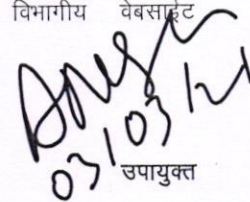 विभागीय वेबसाईट
03/03/21
उपायुक्त